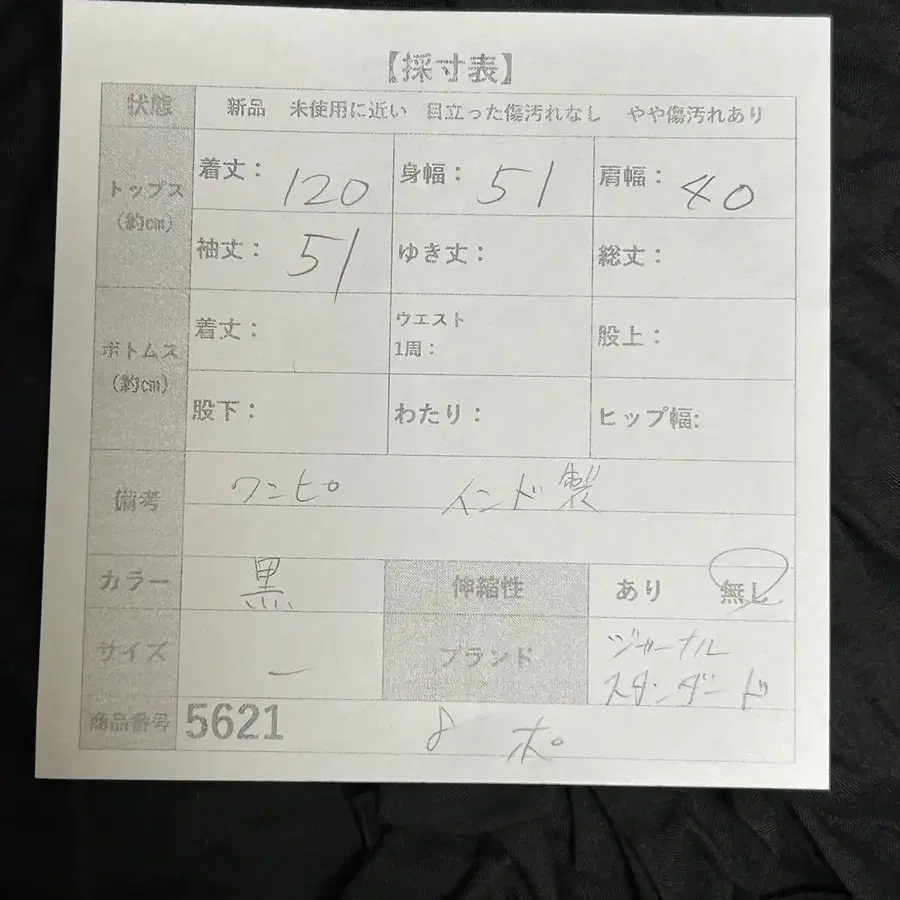 【採寸表】
状態 新品 未使用に近い 目立った傷汚れなし やや傷汚れあり
トップス (約cm) 着丈: 120 身幅: 51 肩幅: 40
袖丈: 51 ゆき丈: 総丈:
ボトムス (約cm) 着丈: ウエスト 1周: 股上:
股下: わたり: ヒップ幅:
備考 ワンピ インド製
カラー 黒 伸縮性 あり 無し
サイズ ー ブランド ジャーナル
スタンダード
商品番号 5621